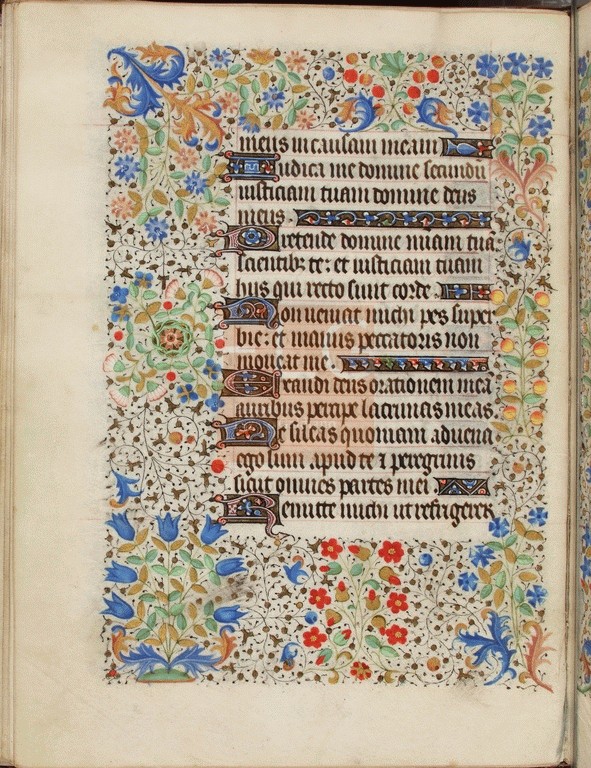 meus in causam meam
Iudica me domine secundu
iusticiam tuam domine deus
meus
Pretende domine miam tua
scientibz te: et iusticiam tuam
hiis qui recto sunt corde.
Non veniat michi pes super
bie: et manus peccatoris non
moueat me
Exaudi deus orationem mea
auribus percipe lacrimas meas.
Ne sileas quoniam aduena
ego sum apud te ⁊ peregrinus
sicut omnes partes mei
Remitte michi ut refrigerer